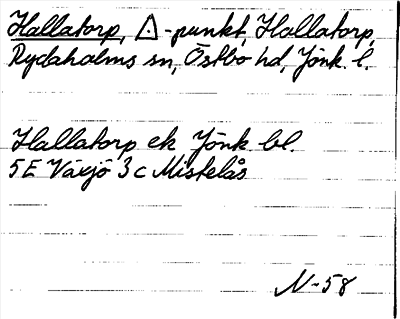 Hallatorp, △-punkt, Hallatorp,
Rydaholms sn, Östbo hd, Jönk. l.
Hallatorp ek Jönk bl.
5E Växjö 3c Mistelås
N-58